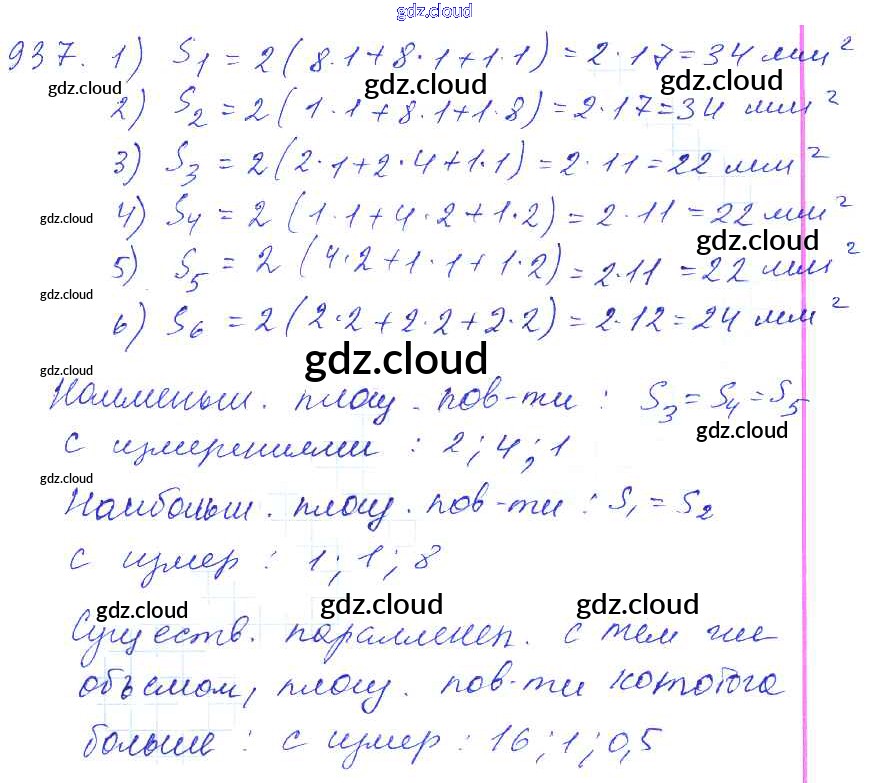 gdz.cloud
937. 1) S₁ = 2(8·1+8·1+1·1) = 2·17 = 34 мм²
gdz.cloud gdz.cloud gdz.cloud
2) S₂ = 2(1·1+8·1+1·8) = 2·17 = 34 мм²
3) S₃ = 2(2·1+2·4+1·1) = 2·11 = 22 мм²
gdz.cloud
4) S₄ = 2(1·1+4·2+1·2) = 2·11 = 22 мм²
gdz.cloud
5) S₅ = 2(4·2+1·1+1·2) = 2·11 = 22 мм²
gdz.cloud
6) S₆ = 2(2·2+2·2+2·2) = 2·12 = 24 мм²
gdz.cloud
gdz.cloud
Наименьш. площ. пов-ти : S₃ = S₄ = S₅
gdz.cloud
с измерениями : 2; 4; 1
gdz.cloud
Наибольш. площ. пов-ти : S₁ = S₂
с измер : 1; 1; 8
gdz.cloud gdz.cloud gdz.cloud
Существ. параллелеп. с тем же
объемом, площ. пов-ти которого
больше : с измер : 16; 1; 0,5